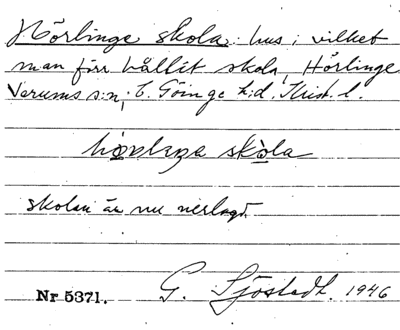 Hörlinge skola: hus i vilket
man förr hållit skola, Hörlinge
Verums s:n, V. Göinge h:d. Krist. l.
skolan är nu nerlagd.
Nr 5371.
G. Sjöstedt. 1946